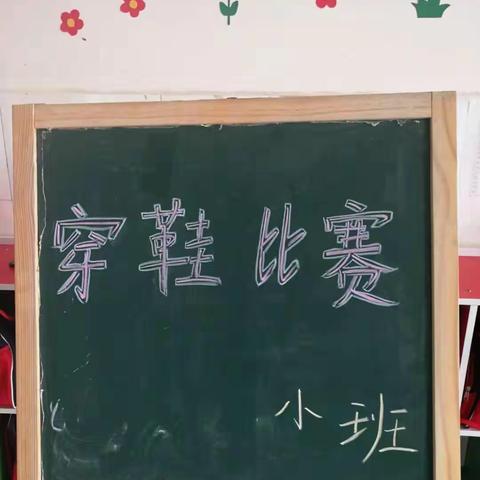 穿鞋比赛
小班